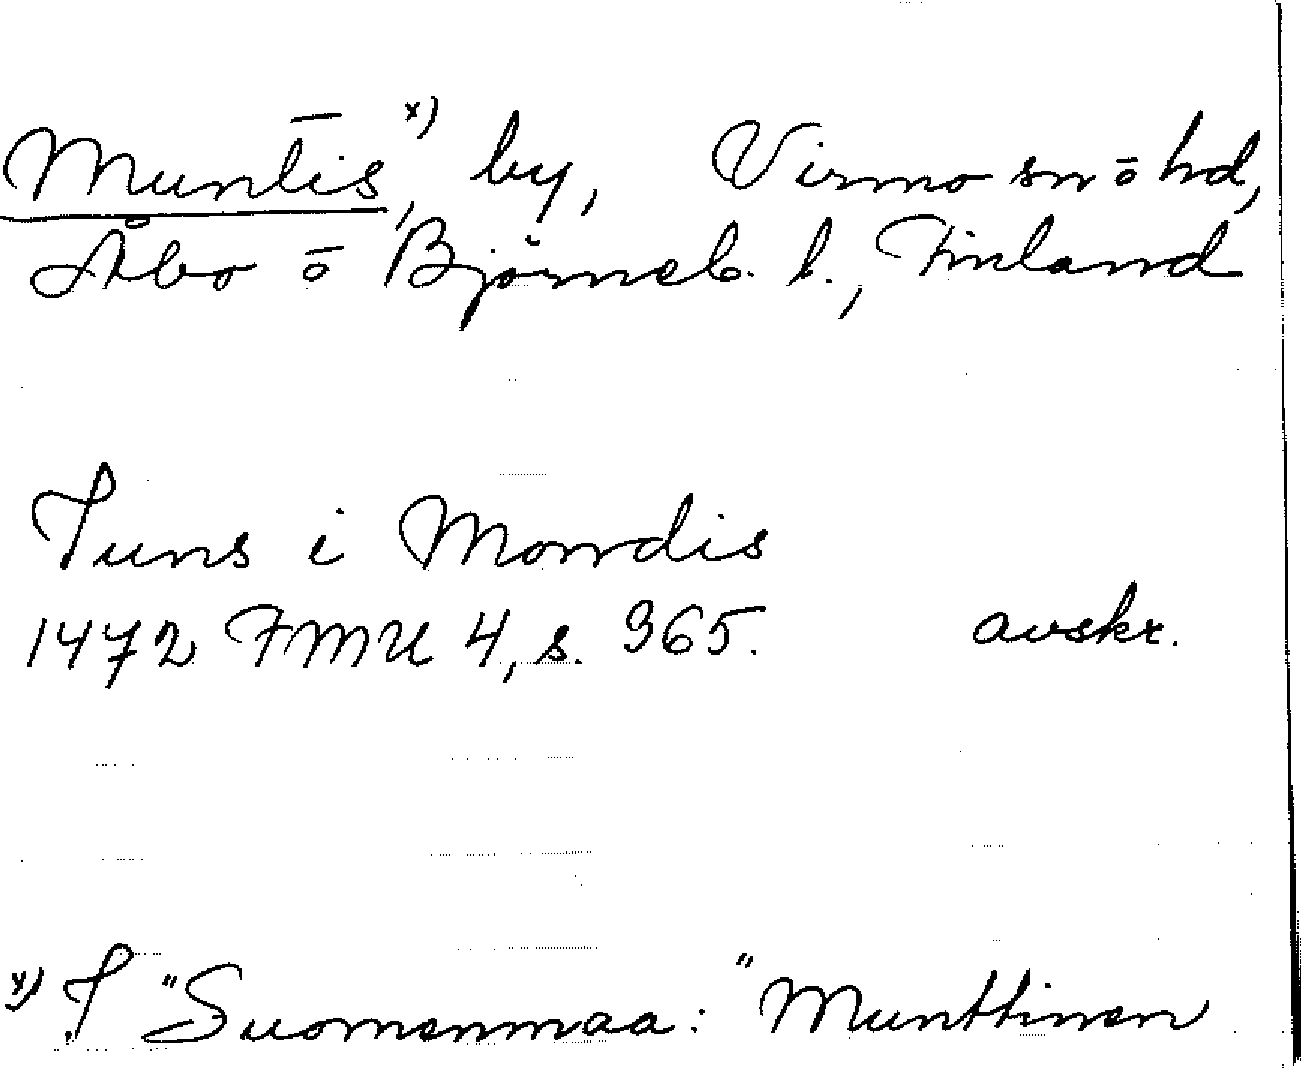 Muntis,ˣ⁾ by, Virmo sn ō hd,
Åbo ō Björneb. l., Finland
Juns i Monndis
1472 FMU 4, s. 365. avskr.
x) I "Suomenmaa:" Munttinen